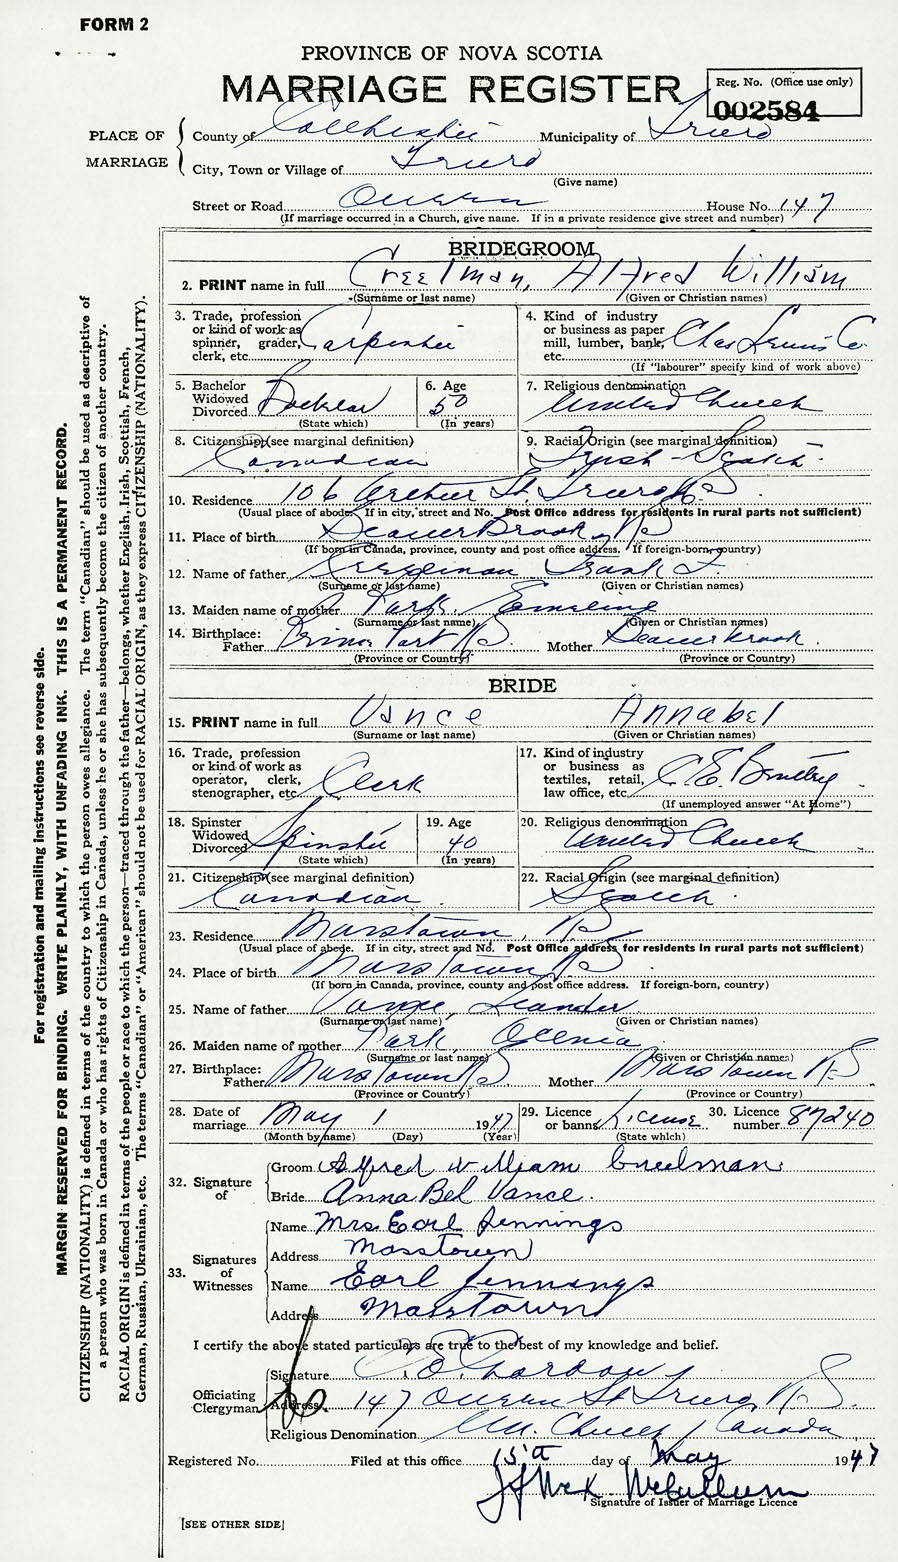 FORM 2
PROVINCE OF NOVA SCOTIA
MARRIAGE REGISTER
Reg. No. (Office use only)
002584
PLACE OF MARRIAGE
County of Colchester Municipality of Truro
City, Town or Village of Truro
(Give name)
Street or Road Queen House No. 147
(If marriage occurred in a Church, give name. If in a private residence give street and number)
BRIDEGROOM
2. PRINT name in full Creelman, Alfred William
(Surname or last name) (Given or Christian names)
3. Trade, profession or kind of work as spinner, grader, clerk, etc. Carpenter
4. Kind of industry or business as paper mill, lumber, bank, etc. Chas Lewis Co
(If "labourer" specify kind of work above)
5. Bachelor Widowed Divorced Bachelor
(State which)
6. Age 50
(In years)
7. Religious denomination United Church
8. Citizenship (see marginal definition) Canadian
9. Racial Origin (see marginal definition) Irish-Scotch
10. Residence 106 Arthur St. Truro N S
(Usual place of abode. If in city, street and No. Post Office address for residents in rural parts not sufficient)
11. Place of birth Beaver Brook N S
(If born in Canada, province, county and post office address. If foreign-born, country)
12. Name of father Creelman Frank F.
(Surname or last name) (Given or Christian names)
13. Maiden name of mother Park, Emeline
(Surname or last name) (Given or Christian names)
14. Birthplace: Father Port N S Mother Beaver brook
(Province or Country) (Province or Country)
BRIDE
15. PRINT name in full Vance Annabel
(Surname or last name) (Given or Christian names)
16. Trade, profession or kind of work as operator, clerk, stenographer, etc. Clerk
17. Kind of industry or business as textiles, retail, law office, etc. C. E. Bentley
(If unemployed answer "At Home")
18. Spinster Widowed Divorced Spinster
(State which)
19. Age 40
(In years)
20. Religious denomination United Church
21. Citizenship (see marginal definition) Canadian
22. Racial Origin (see marginal definition) Scotch
23. Residence Masstown, N S
(Usual place of abode. If in city, street and No. Post Office address for residents in rural parts not sufficient)
24. Place of birth Masstown N S
(If born in Canada, province, county and post office address. If foreign-born, country)
25. Name of father Vance, Leander
(Surname or last name) (Given or Christian names)
26. Maiden name of mother Park,
(Surname or last name) (Given or Christian names)
27. Birthplace: Father Masstown N S Mother Masstown N S
(Province or Country) (Province or Country)
28. Date of marriage May 1 1947
(Month by name) (Day) (Year)
29. Licence or banns License
(State which)
30. Licence number 87240
32. Signature of
Groom Alfred William Creelman
Bride AnnaBel Vance.
33. Signatures of Witnesses
Name Mrs. Earl Jennings
Address Masstown
Name Earl Jennings
Address Masstown
I certify the above stated particulars are true to the best of my knowledge and belief.
Officiating Clergyman
Signature Gordon
Address 147 Queen St Truro, N. S.
Religious Denomination Un. Church / Canada
Registered No. Filed at this office 15th day of May 1947
McCullum
Signature of Issuer of Marriage Licence
[SEE OTHER SIDE]
For registration and mailing instructions see reverse side.
MARGIN RESERVED FOR BINDING. WRITE PLAINLY, WITH UNFADING INK. THIS IS A PERMANENT RECORD.
CITIZENSHIP (NATIONALITY) is defined in terms of the country to which the person owes allegiance. The term "Canadian" should be used as descriptive of
a person who was born in Canada or who has rights of Citizenship in Canada, unless he or she has subsequently become the citizen of another country.
RACIAL ORIGIN is defined in terms of the people or race to which the person—traced through the father—belongs, whether English, Irish, Scottish, French,
German, Russian, Ukrainian, etc. The terms "Canadian" or "American" should not be used for RACIAL ORIGIN, as they express CITIZENSHIP (NATIONALITY).